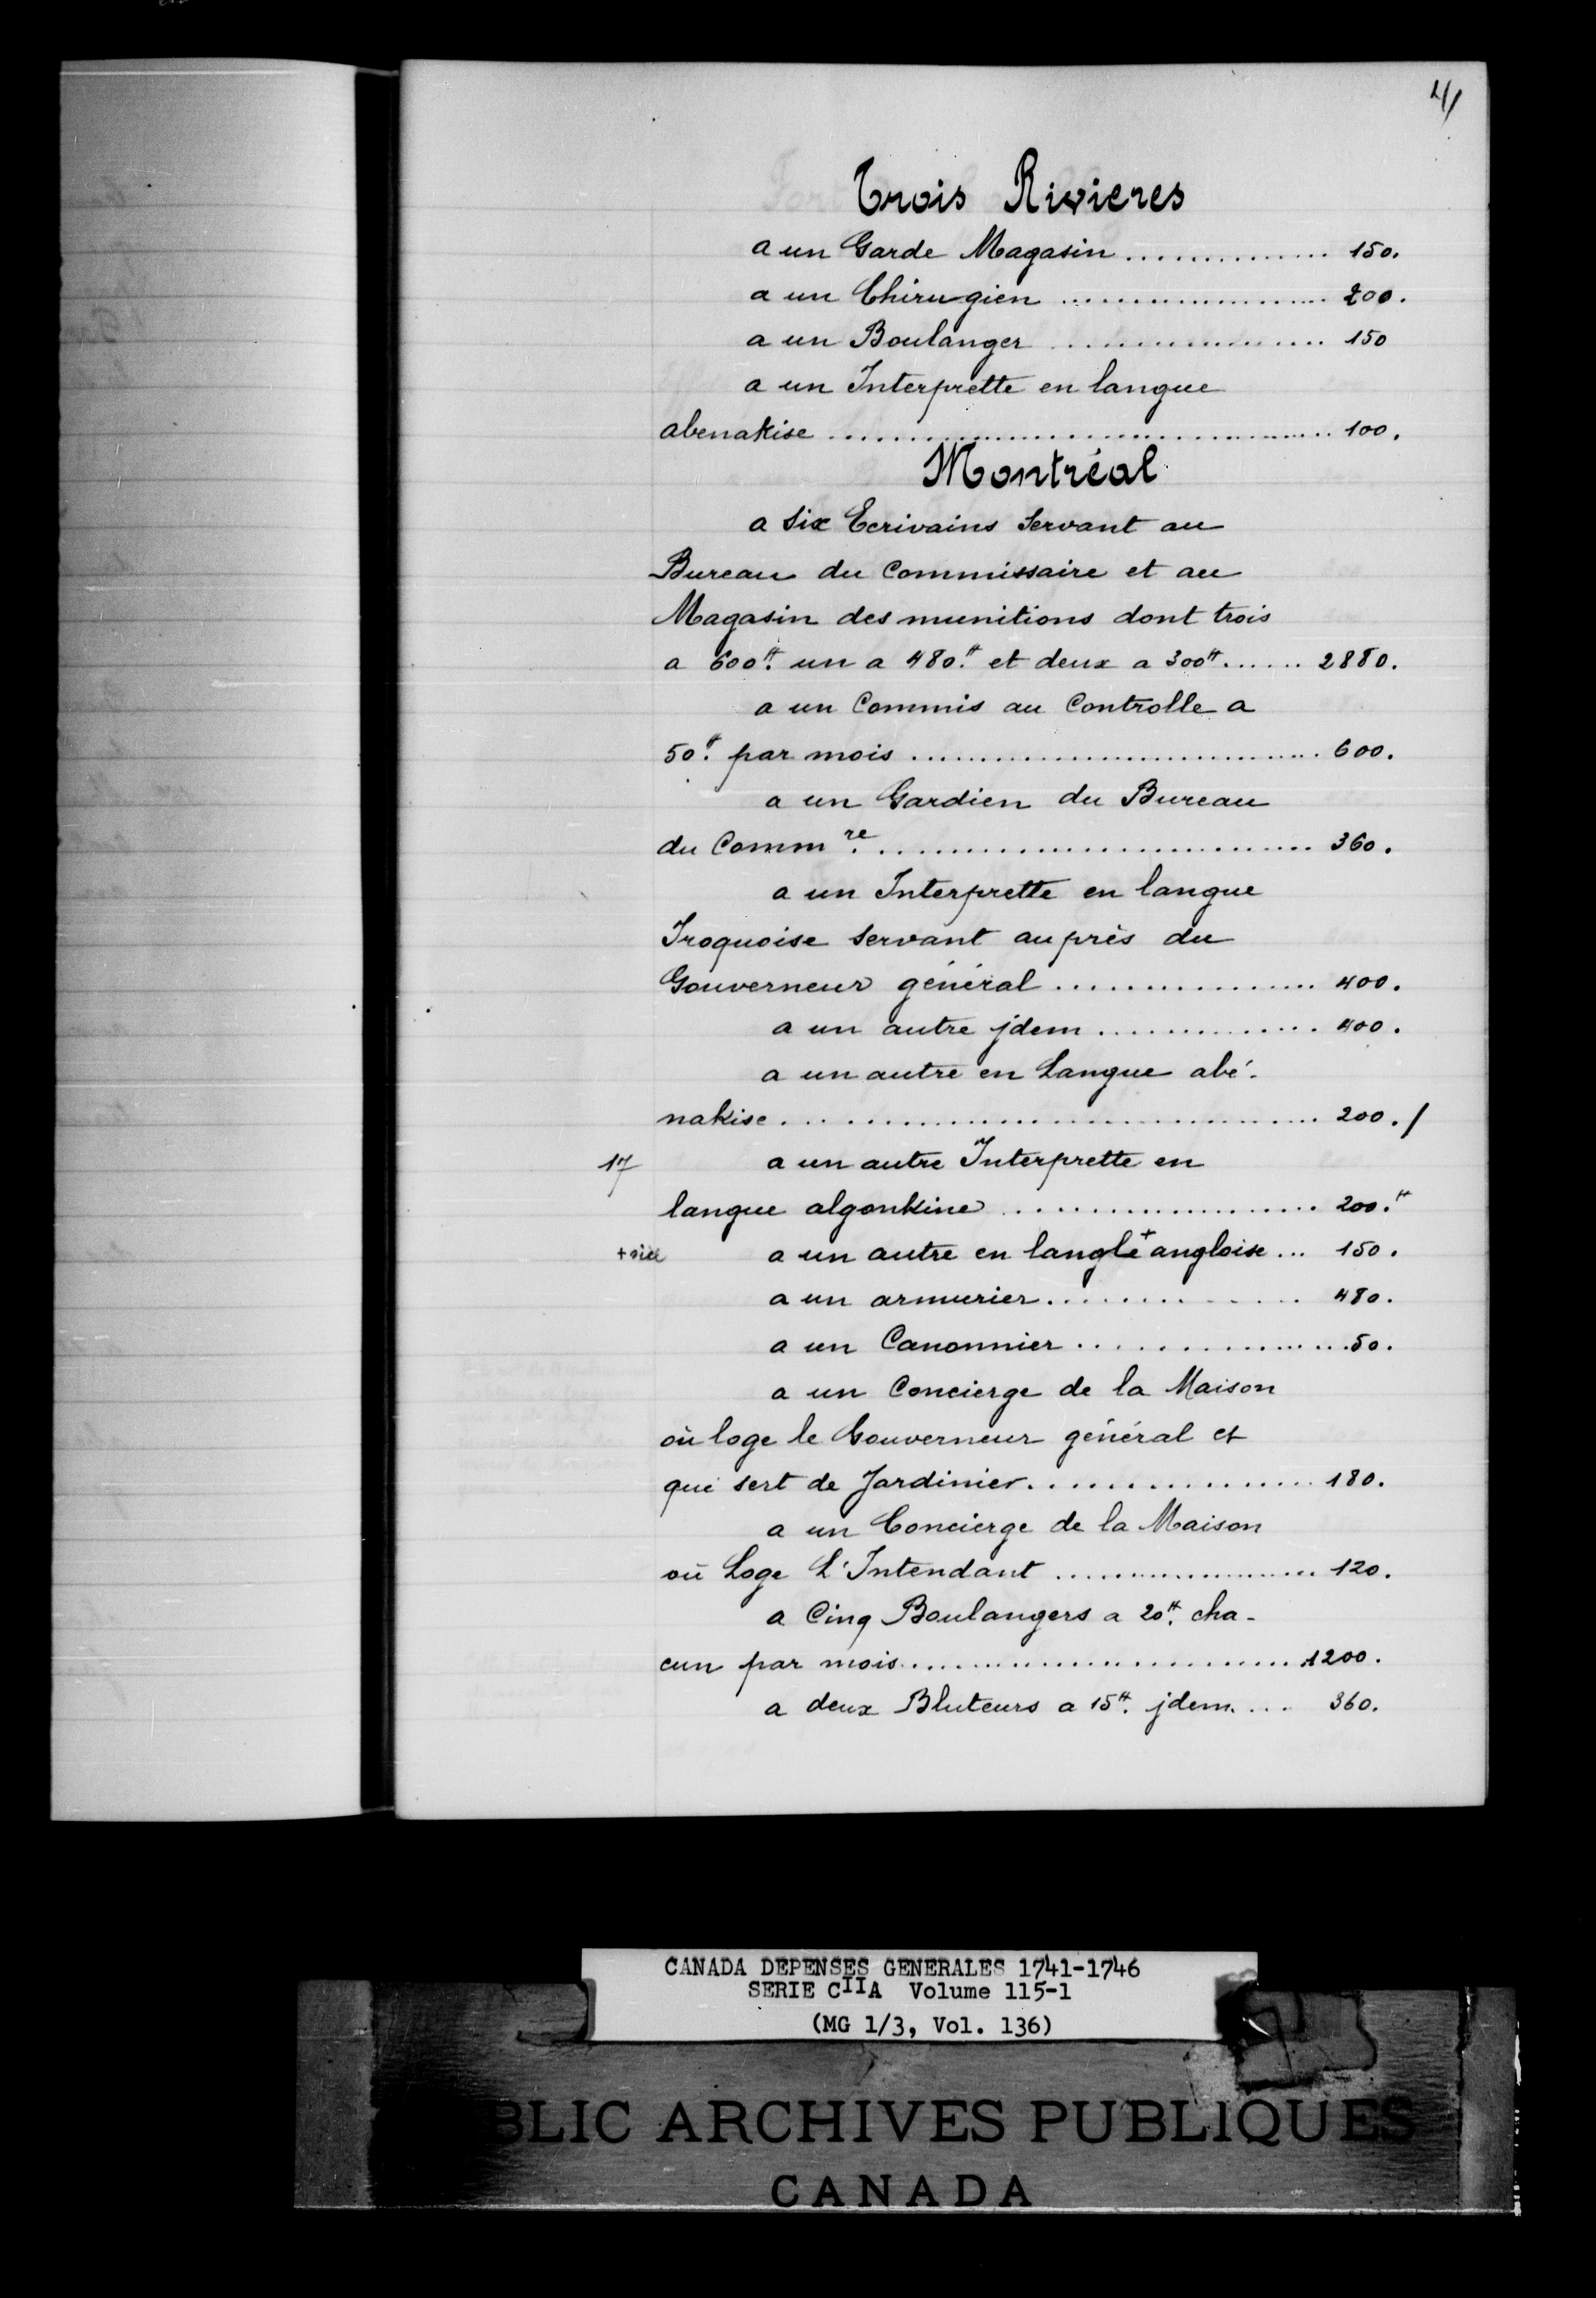 4/
Trois Rivieres
a un Garde Magasin .............. 150.
a un Chirugien .................. 200.
a un Boulanger .................. 150
a un Interprette en langue
abenakise .................................. 100.
Montréal
a six Ecrivains servant au
Bureau du Commissaire et au
Magasin des munitions dont trois
a 600.tt un a 480.tt et deux a 300tt ...... 2880.
a un Commis au Controlle a
50.tt par mois ............................ 600.
a un Gardien du Bureau
du Comm.re ............................. 360.
a un Interprette en langue
Iroquoise servant auprès du
Gouverneur général ................. 400.
a un autre jdem ............... 400.
a un autre en Langue abé-
nakise .................................... 200./
17 a un autre Interprette en
langue algonkine .................... 200.tt
+sic a un autre en langle+ angloise ... 150.
a un armurier ................. 480.
a un Canonnier .................. 50.
a un Concierge de la Maison
où loge le Gouverneur général et
qui sert de Jardinier .................. 180.
a un Concierge de la Maison
où Loge L'Intendant .................. 120.
a Cinq Boulangers a 20.tt cha-
cun par mois .......................... 1200.
a deux Bluteurs a 15.tt jdem .... 360.
CANADA DEPENSES GENERALES 1741-1746
SERIE CIIA Volume 115-1
(MG 1/3, Vol. 136)
BLIC ARCHIVES PUBLIQUES
CANADA